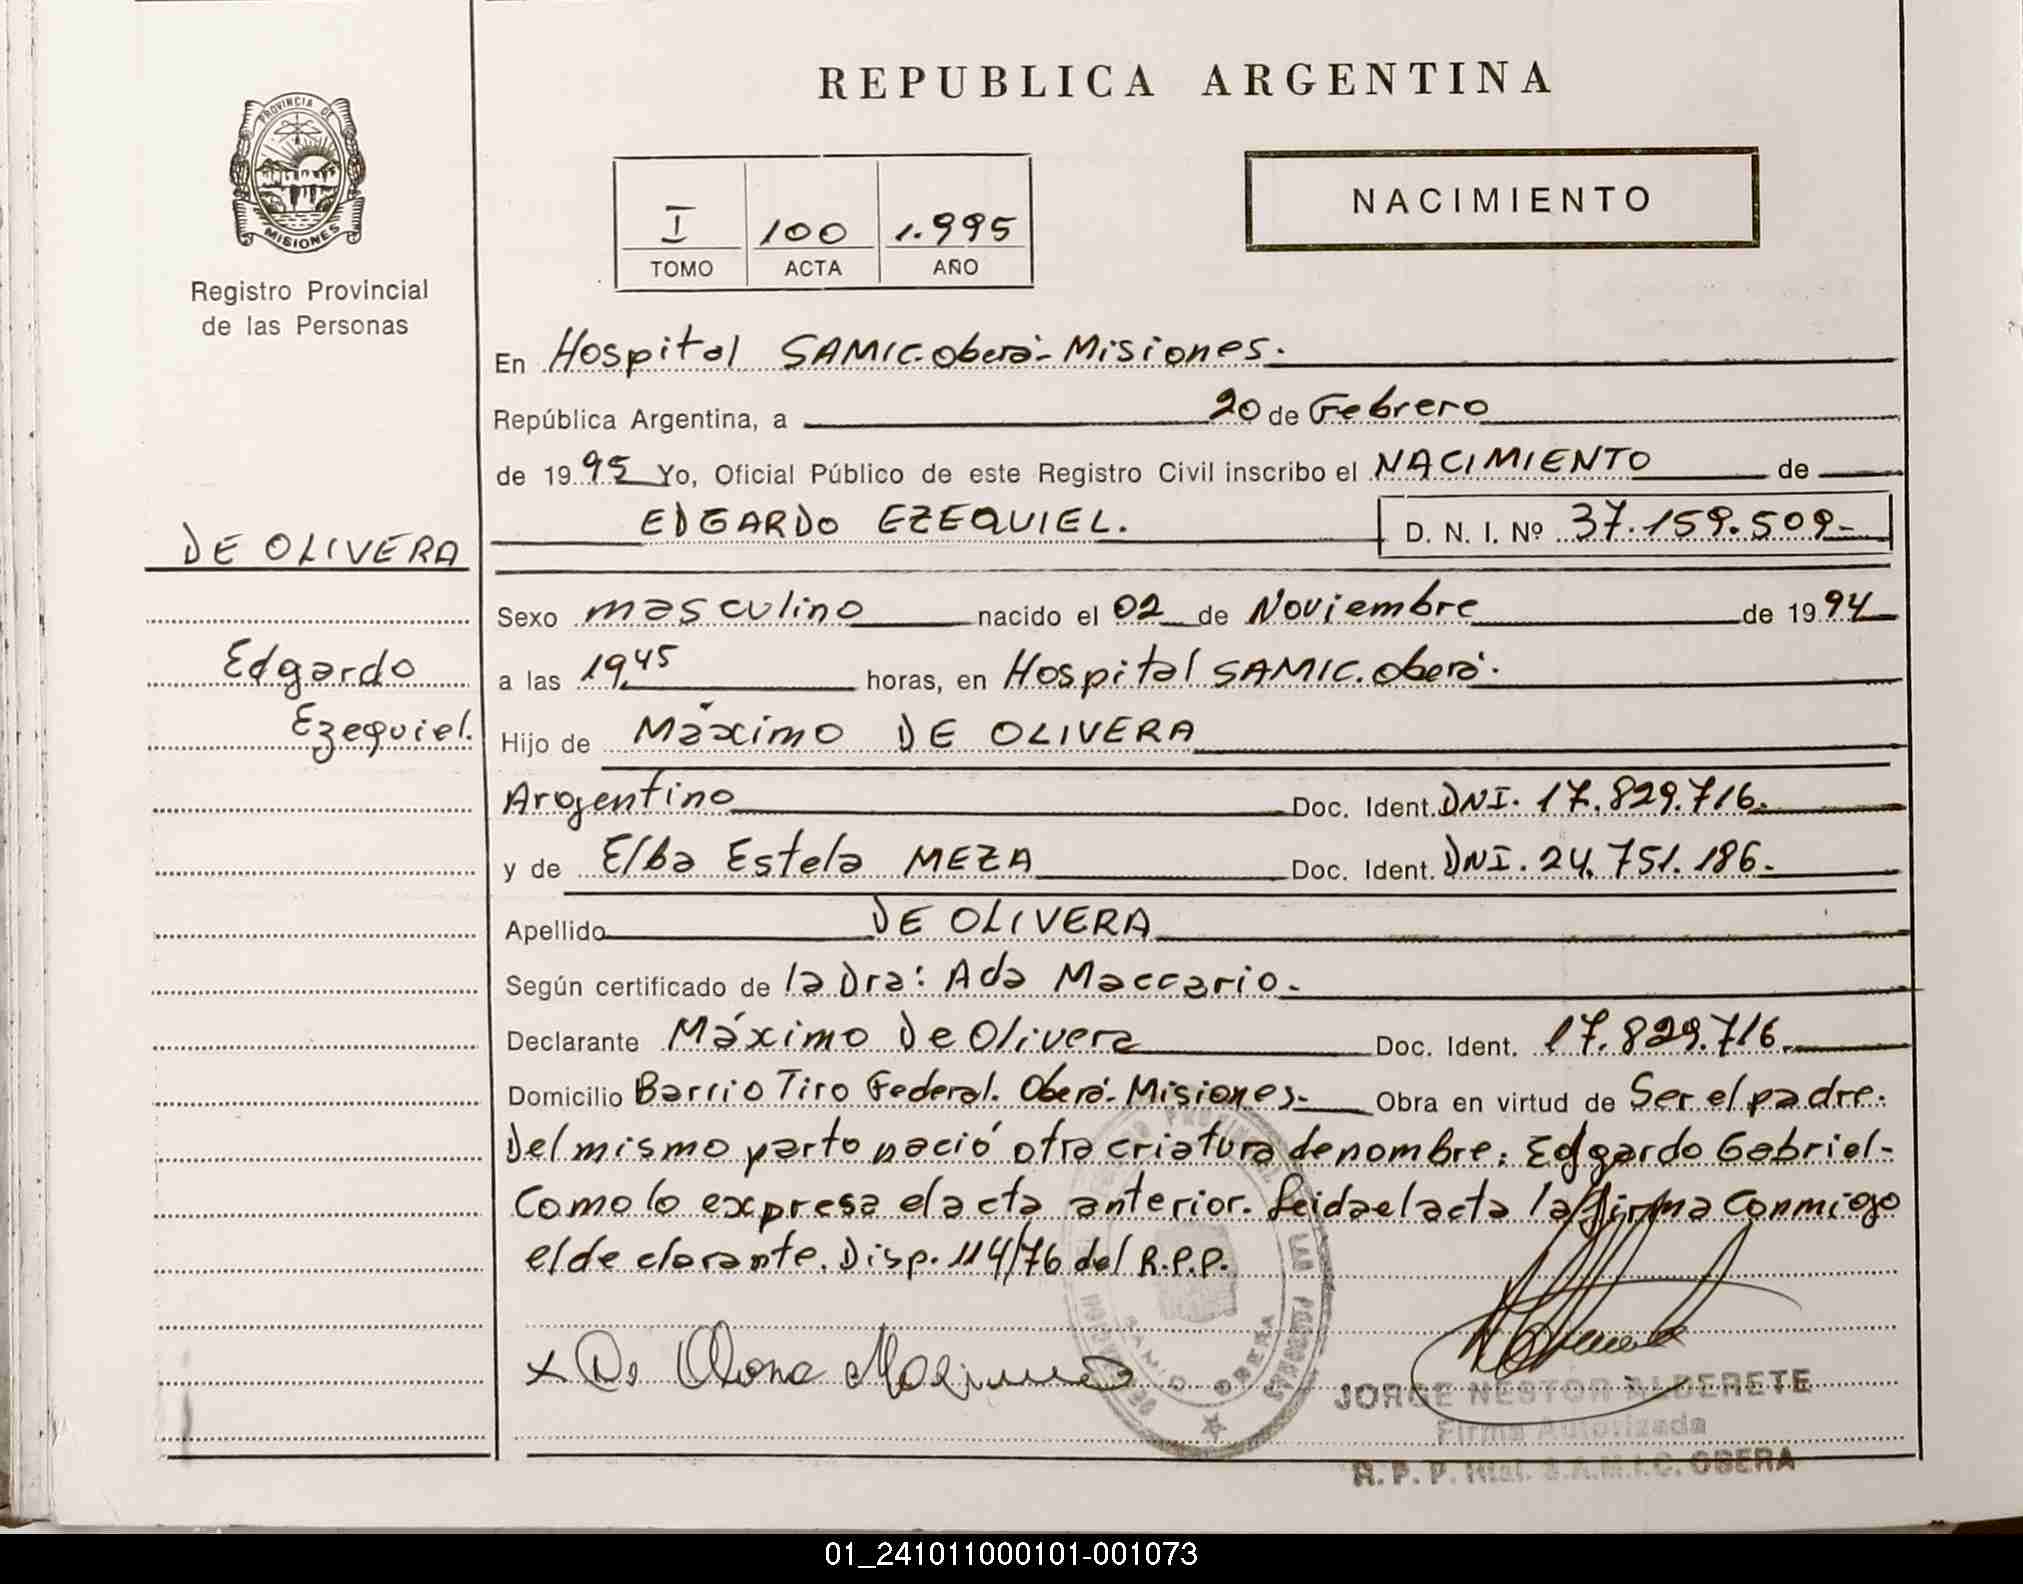 REPUBLICA ARGENTINA
PROVINCIA DE
MISIONES
Registro Provincial
de las Personas
I 100 1.995
TOMO ACTA AÑO
NACIMIENTO
En Hospital SAMIC. Oberá - Misiones.
República Argentina, a 20 de Febrero
de 1995 Yo, Oficial Público de este Registro Civil inscribo el NACIMIENTO de
EDGARDO EZEQUIEL. D. N. I. Nº 37.159.509-
DE OLIVERA
Edgardo
Ezequiel.
Sexo masculino nacido el 02 de Noviembre de 1994
a las 19,45 horas, en Hospital SAMIC. Oberá.
Hijo de Máximo DE OLIVERA
Argentino Doc. Ident. DNI. 17.829.716.
y de Elba Estela MEZA Doc. Ident. DNI. 24.751.186.
Apellido DE OLIVERA
Según certificado de la Dra: Ada Maccario.
Declarante Máximo De Olivera Doc. Ident. 17.829.716.
Domicilio Barrio Tiro Federal. Oberá - Misiones. Obra en virtud de Ser el padre.
Del mismo parto nació otra criatura de nombre: Edgardo Gabriel-
Como lo expresa el acta anterior. Leida el acta la firma Conmigo
el declarante. Disp. 114/76 del R.P.P.
x De
JORGE NESTOR ALDERETE
Firma Autorizada
R. P. P. Htal. S.A.M.I.C. OBERA
01_241011000101-001073